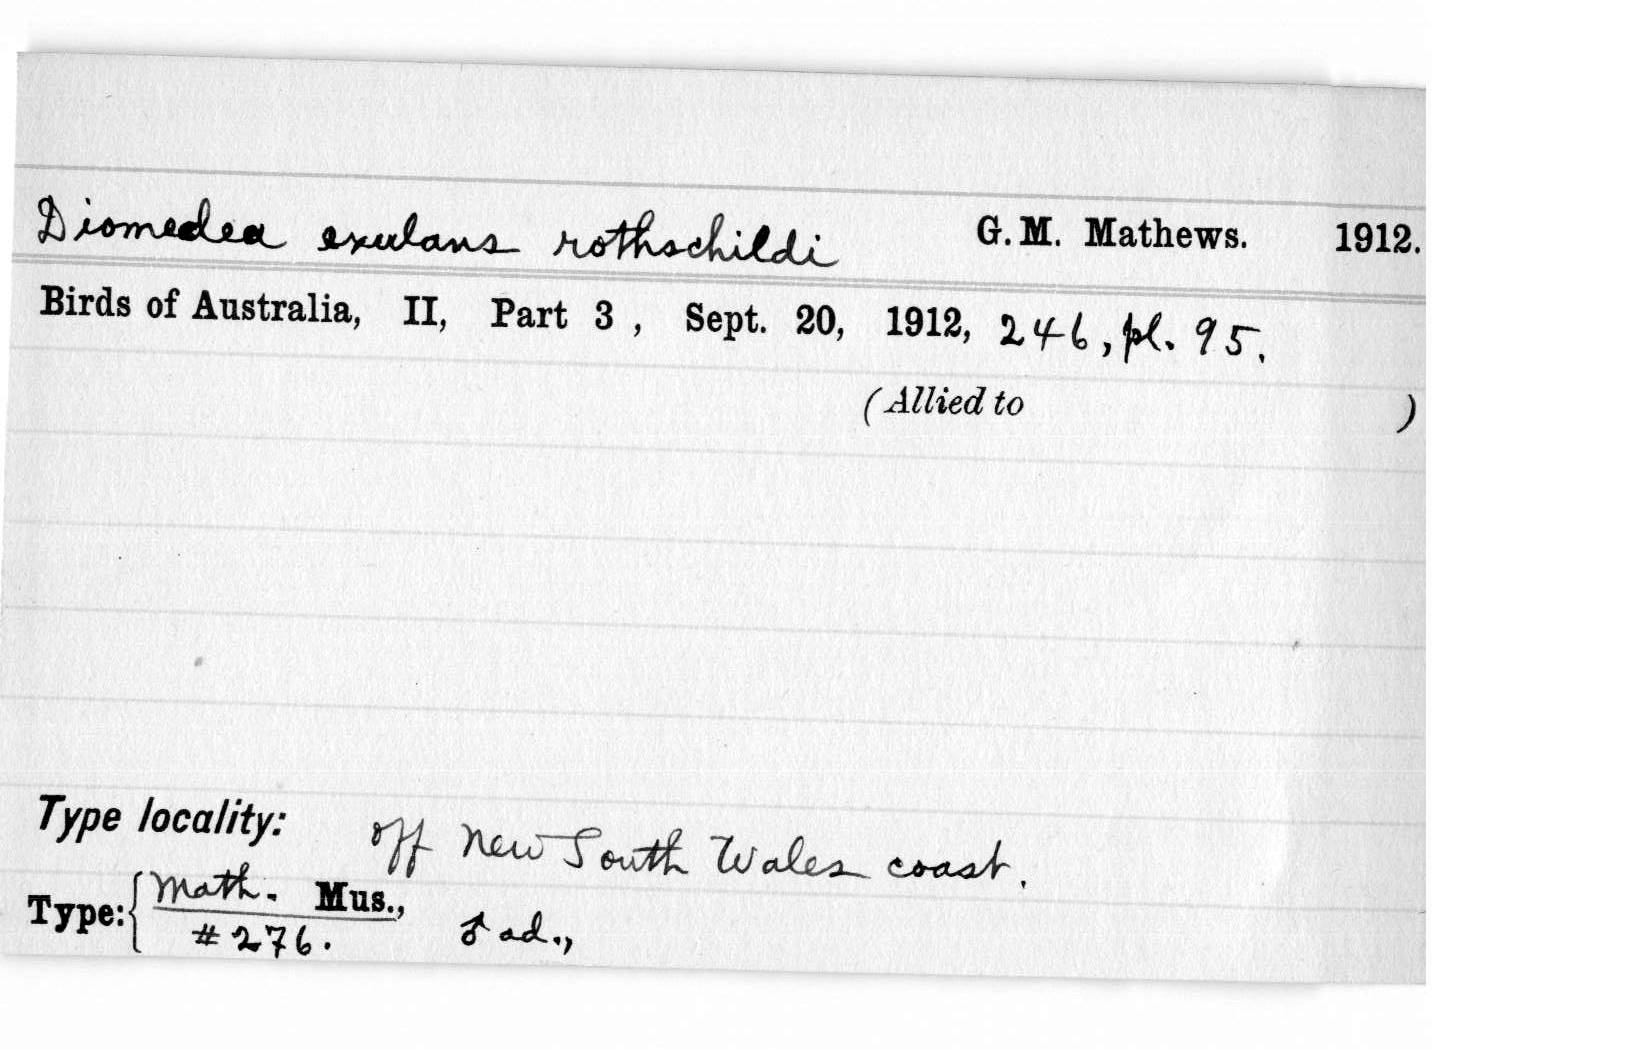 Diomedea exulans rothschildi G. M. Mathews. 1912.
Birds of Australia, II, Part 3, Sept. 20, 1912, 246, pl. 95.
(Allied to )
Type locality: off New South Wales coast.
Type: { Math. Mus.,
#276. ♂ ad.,